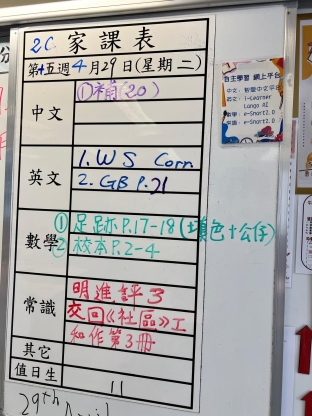 2C 家課表
第十五週4月29日(星期二)
中文
①補(20)
英文
1. WS Corr.
2. GB P.21
數學
① 足跡P.17-18(填色+公仔)
② 校本P.2-4
常識
明進評3
交回《社區》工
和作第3冊
其它
值日生
11
29th
自主學習 網上平台
中文: 智愛中文平台
英文: i-Learner
Lango AI
數學: e-Smart2.0
常識: e-Smart2.0